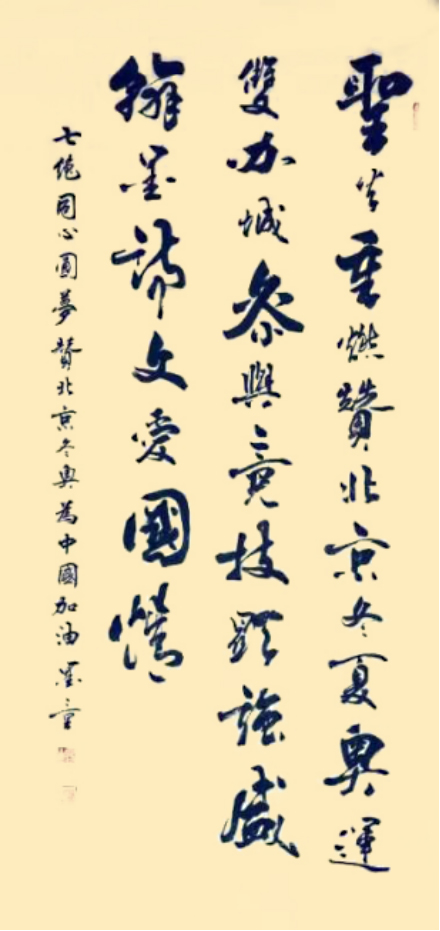 聖火重燃贊北京冬夏奥運
雙办城参與竞技顯強盛
翰墨詩文愛國情
七绝同心圓夢贊北京冬奥為中國加油墨童